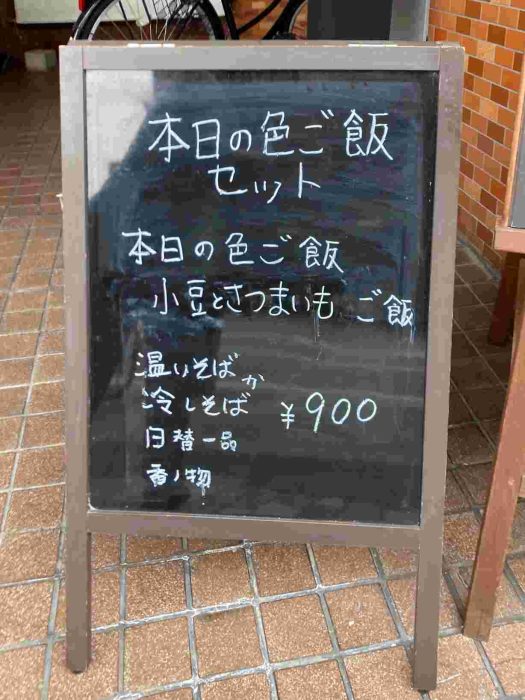 本日の色ご飯
セット
本日の色ご飯
小豆とさつまいもご飯
温いそばか
冷しそば ¥900
日替一品
香ノ物